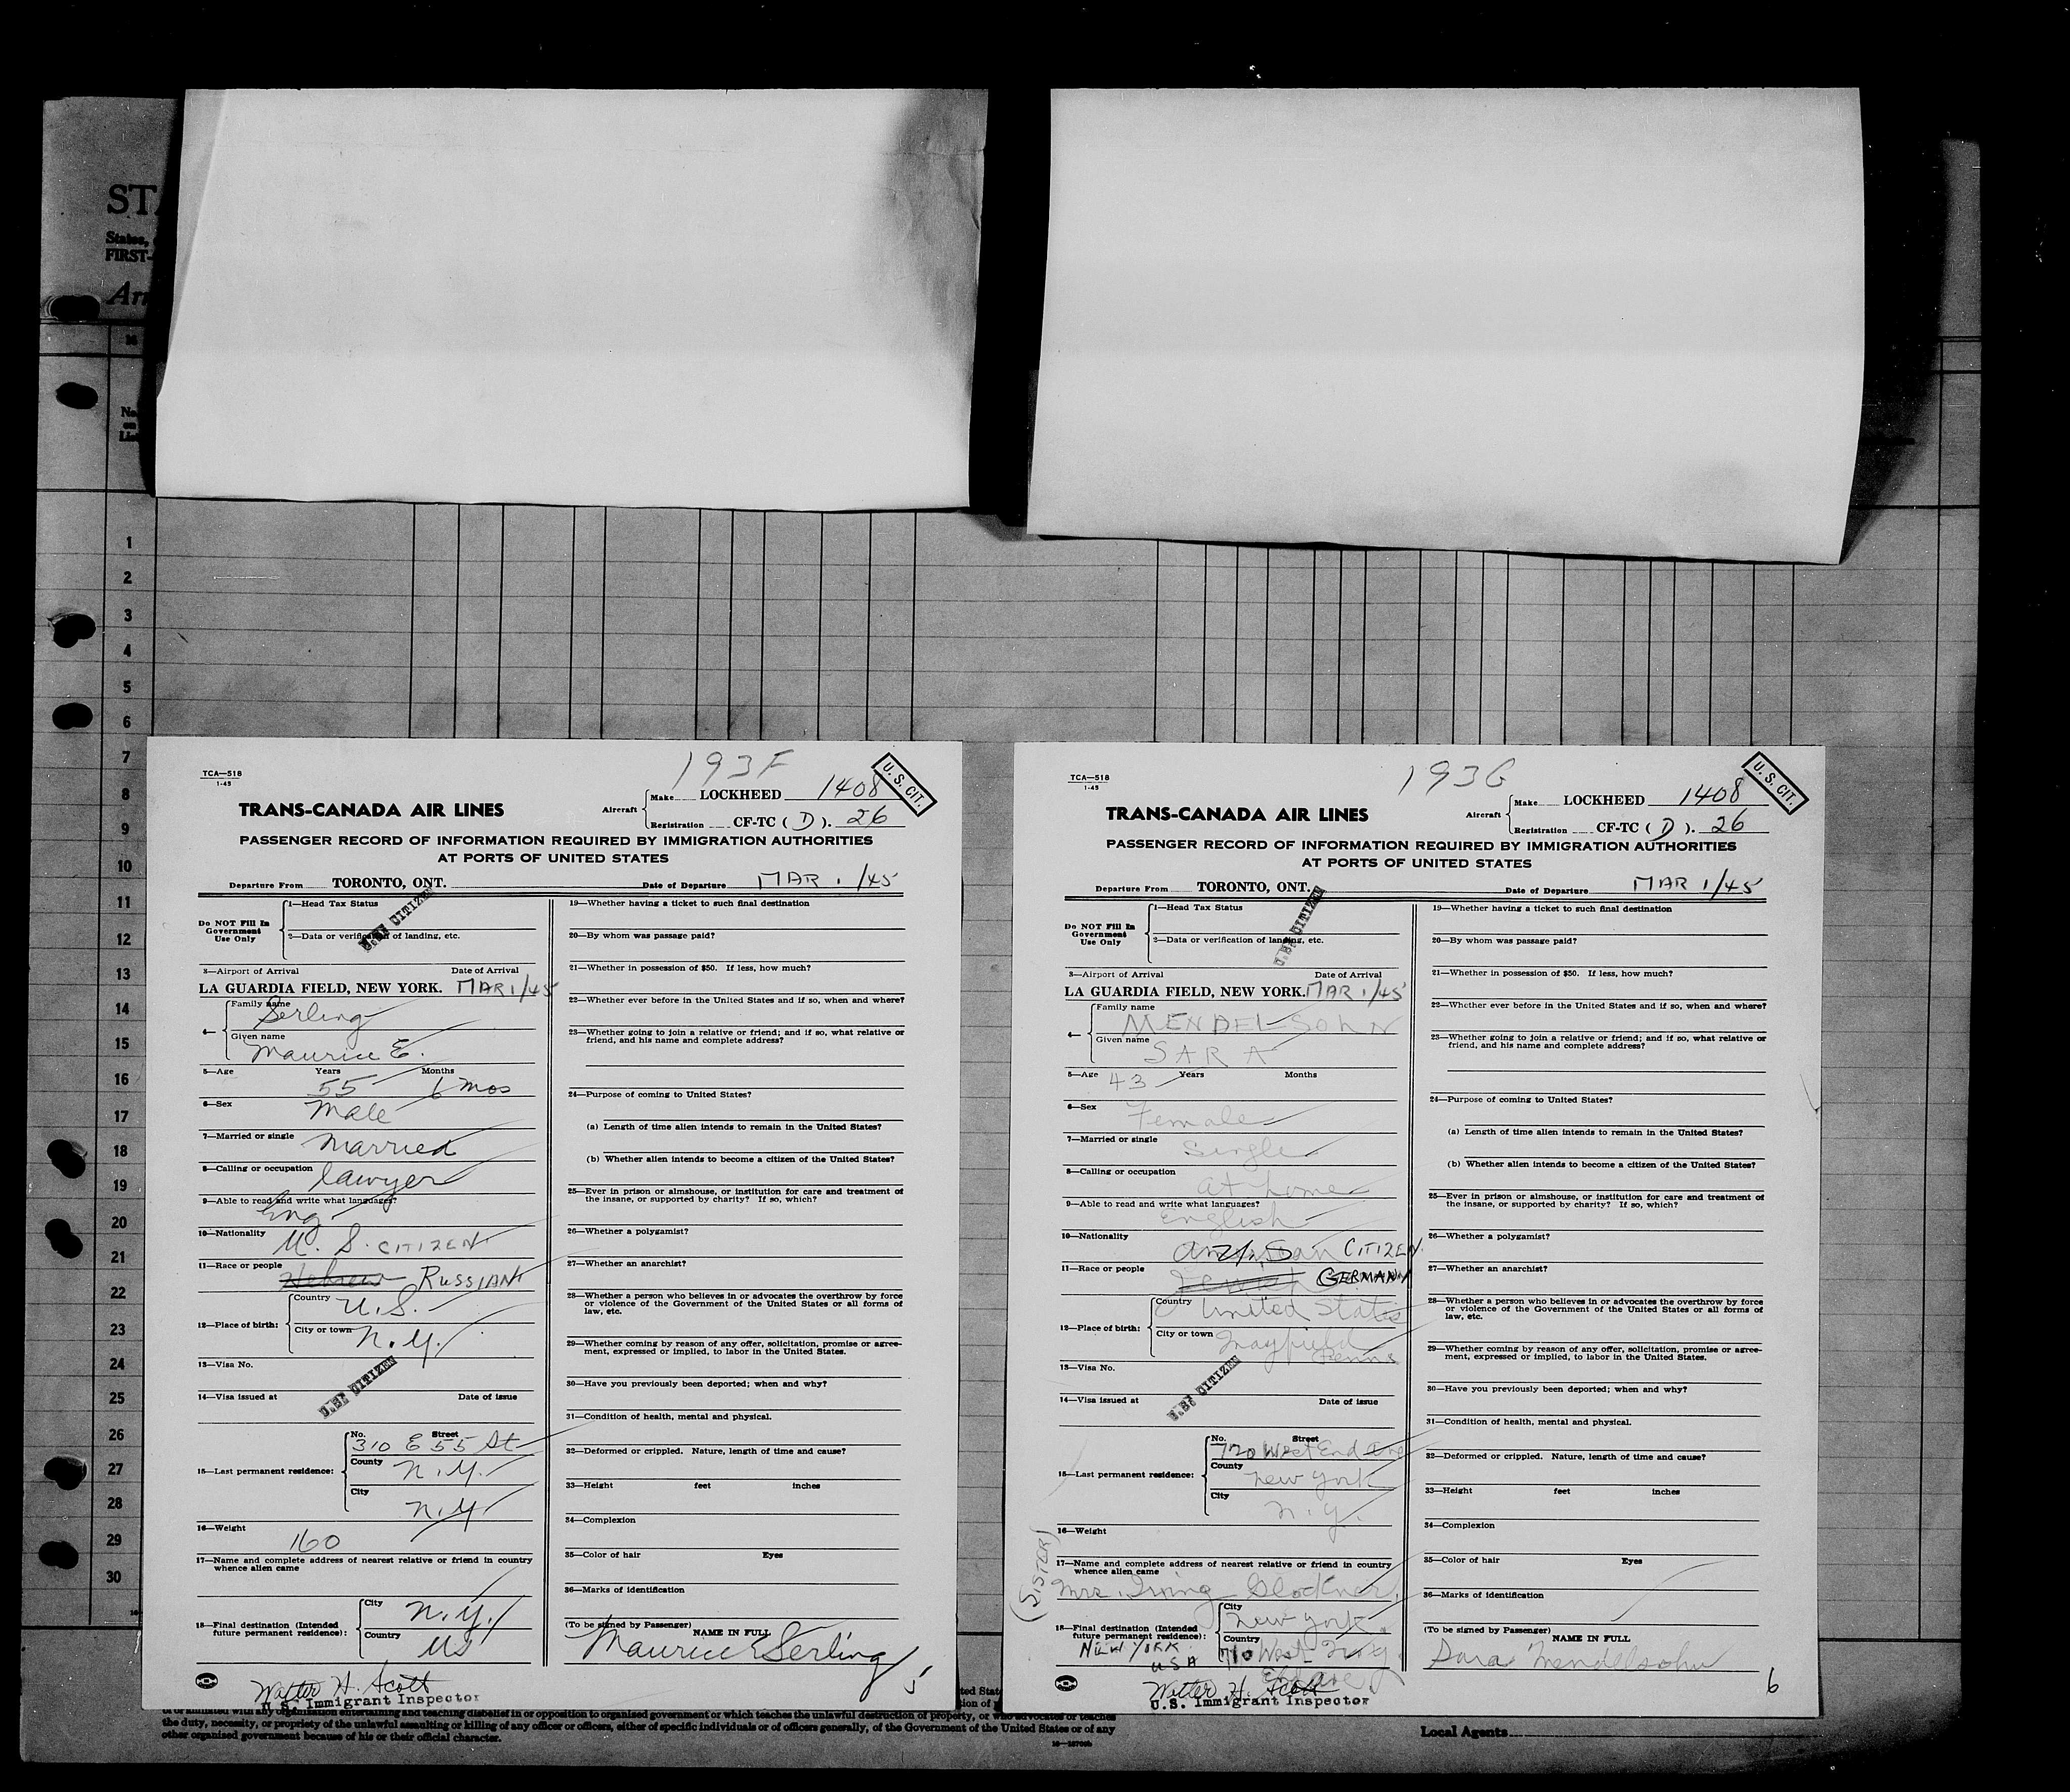 ST
States,
FIRST-
An
No.
on
List
1
2
3
4
5
6
7
8
9
10
11
12
13
14
15
16
17
18
19
20
21
22
23
24
25
26
27
28
29
30
193F
TCA—518
1-45
U. S. CIT.
TRANS-CANADA AIR LINES
Aircraft
Make LOCKHEED 1408
Registration CF-TC (D). 26
PASSENGER RECORD OF INFORMATION REQUIRED BY IMMIGRATION AUTHORITIES
AT PORTS OF UNITED STATES
Departure From TORONTO, ONT. Date of Departure MAR 1/45
Do NOT Fill In
Government
Use Only
1—Head Tax Status
2—Data or verification of landing, etc.
CITIZEN
3—Airport of Arrival Date of Arrival
LA GUARDIA FIELD, NEW YORK. MAR 1/45
4—
Family name
Serling
Given name
Maurice E.
5—Age Years Months
55 6 mos
6—Sex
Male
7—Married or single Married
8—Calling or occupation lawyer
9—Able to read and write what languages?
Eng
10—Nationality
U. S. CITIZEN
11—Race or people
Hebrew RUSSIAN
12—Place of birth:
Country U.S.
City or town N.Y.
13—Visa No.
CITIZEN
14—Visa issued at Date of issue
15—Last permanent residence:
No. Street
310 E 55 St
County
N.Y.
City
N.Y.
16—Weight
160
17—Name and complete address of nearest relative or friend in country
whence alien came
18—Final destination (Intended
future permanent residence):
City N.Y.
Country US
Walter H. Scott
U.S. Immigrant Inspector
19—Whether having a ticket to such final destination
20—By whom was passage paid?
21—Whether in possession of $50. If less, how much?
22—Whether ever before in the United States and if so, when and where?
23—Whether going to join a relative or friend; and if so, what relative or
friend, and his name and complete address?
24—Purpose of coming to United States?
(a) Length of time alien intends to remain in the United States?
(b) Whether alien intends to become a citizen of the United States?
25—Ever in prison or almshouse, or institution for care and treatment of
the insane, or supported by charity? If so, which?
26—Whether a polygamist?
27—Whether an anarchist?
28—Whether a person who believes in or advocates the overthrow by force
or violence of the Government of the United States or all forms of
law, etc.
29—Whether coming by reason of any offer, solicitation, promise or agree-
ment, expressed or implied, to labor in the United States.
30—Have you previously been deported; when and why?
31—Condition of health, mental and physical.
32—Deformed or crippled. Nature, length of time and cause?
33—Height feet inches
34—Complexion
35—Color of hair Eyes
36—Marks of identification
(To be signed by Passenger)
NAME IN FULL
Maurice E Serling
5
193G
TCA—518
1-45
U. S. CIT.
TRANS-CANADA AIR LINES
Aircraft
Make LOCKHEED 1408
Registration CF-TC (D). 26
PASSENGER RECORD OF INFORMATION REQUIRED BY IMMIGRATION AUTHORITIES
AT PORTS OF UNITED STATES
Departure From TORONTO, ONT. Date of Departure MAR 1/45
Do NOT Fill In
Government
Use Only
1—Head Tax Status
2—Data or verification of landing, etc.
CITIZEN
3—Airport of Arrival Date of Arrival
LA GUARDIA FIELD, NEW YORK. MAR 1/45
4—
Family name
MENDELSOHN
Given name
SARA
5—Age 43 Years Months
6—Sex
Female
7—Married or single
Single
8—Calling or occupation
at home
9—Able to read and write what languages?
English
10—Nationality
American U.S. CITIZEN
11—Race or people
GERMAN
12—Place of birth:
Country United States
City or town Mayfield
Penna
13—Visa No.
CITIZEN
14—Visa issued at Date of issue
15—Last permanent residence:
No. Street
720 West End Ave
County
New York
City
N.Y.
16—Weight
17—Name and complete address of nearest relative or friend in country
whence alien came
(SISTER)
Mrs. Irving Glockner
18—Final destination (Intended
future permanent residence):
NEW YORK
USA
City
New York
Country
710 West
Walter H. Scott
U.S. Immigrant Inspector
19—Whether having a ticket to such final destination
20—By whom was passage paid?
21—Whether in possession of $50. If less, how much?
22—Whether ever before in the United States and if so, when and where?
23—Whether going to join a relative or friend; and if so, what relative or
friend, and his name and complete address?
24—Purpose of coming to United States?
(a) Length of time alien intends to remain in the United States?
(b) Whether alien intends to become a citizen of the United States?
25—Ever in prison or almshouse, or institution for care and treatment of
the insane, or supported by charity? If so, which?
26—Whether a polygamist?
27—Whether an anarchist?
28—Whether a person who believes in or advocates the overthrow by force
or violence of the Government of the United States or all forms of
law, etc.
29—Whether coming by reason of any offer, solicitation, promise or agree-
ment, expressed or implied, to labor in the United States.
30—Have you previously been deported; when and why?
31—Condition of health, mental and physical.
32—Deformed or crippled. Nature, length of time and cause?
33—Height feet inches
34—Complexion
35—Color of hair Eyes
36—Marks of identification
(To be signed by Passenger)
NAME IN FULL
Sara Mendelsohn
6
or affiliated with any organization entertaining and teaching disbelief in or opposition to organised government or which teaches the unlawful destruction of property, or who advocates or teaches
the duty, necessity, or propriety of the unlawful assaulting or killing of any officer or officers, either of specific individuals or of officers generally, of the Government of the United States or of any
other organised government because of his or their official character.
Local Agents